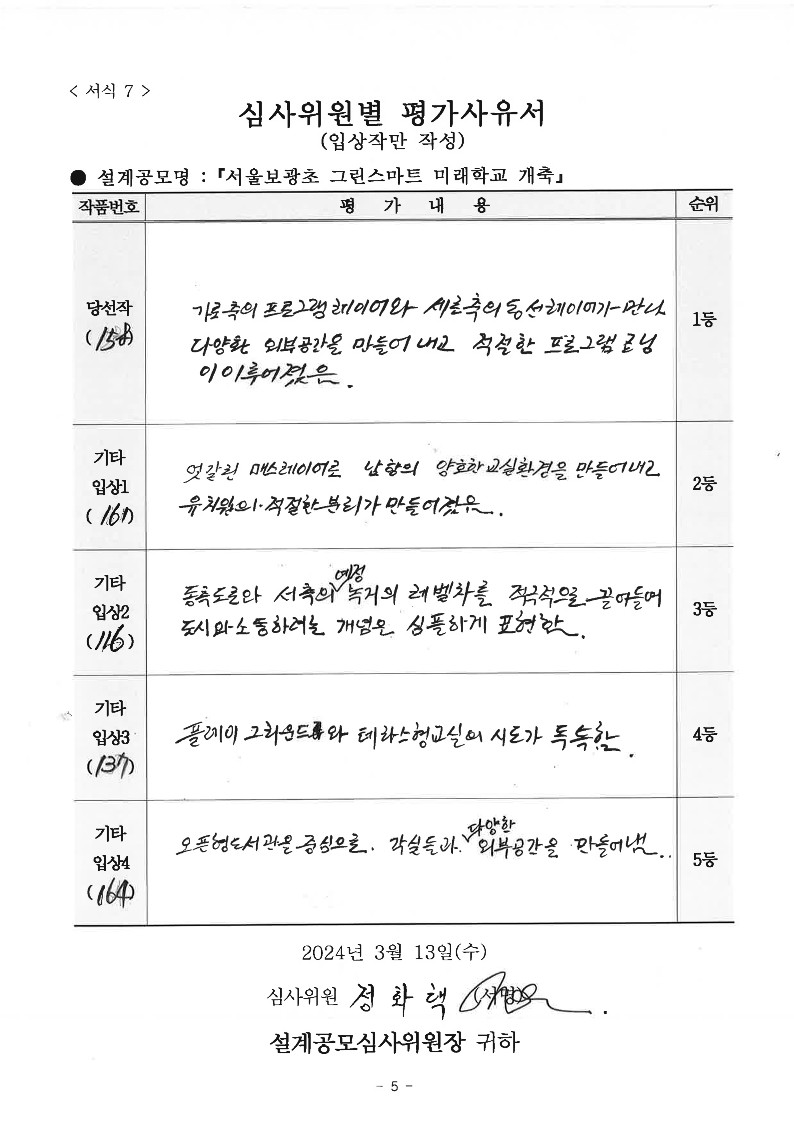 < 서식 7 >
심사위원별 평가사유서
(입상작만 작성)
● 설계공모명 : 『서울보광초 그린스마트 미래학교 개축』
작품번호 평 가 내 용 순위
당선작
(158)
가로축의 프로그램 레이어와 세로축의 동선레이어가 만나
다양한 외부공간을 만들어 내고 적절한 프로그램 조닝
이 이루어졌음.
1등
기타
입상1
(161)
엇갈린 매스레이어로 남향의 양호한 교실환경을 만들어내고
유치원의 적절한 분리가 만들어졌음.
2등
기타
입상2
(116)
동측도로와 서측의 예정 녹지의 레벨차를 적극적으로 끌어들여
도시와 소통하려는 개념을 심플하게 표현함.
3등
기타
입상3
(137)
플레이 그라운드와 테라스형교실의 시도가 독특함.
4등
기타
입상4
(164)
오픈형도서관을 중심으로. 각실들과. 다양한 외부공간을 만들어냄..
5등
2024년 3월 13일(수)
심사위원 정 화 택 (서명)
설계공모심사위원장 귀하
- 5 -